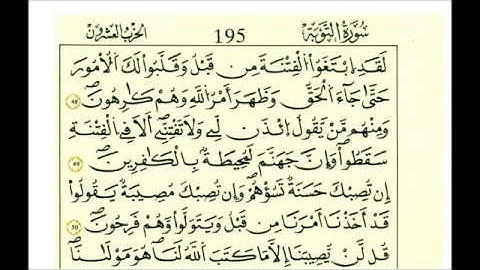 سورة التوبة 195 الحزب العشرون
لَقَدِ اِبْتَغَوُاْ الْفِتْنَةَ مِن قَبْلُ وَقَلَّبُواْ لَكَ اَلُامُورَ
حَتَّىٰ جَآءَ اَلْحَقُّ وَظَهَرَ أَمْرُ اُللَّهِ وَهُمْ كَٰرِهُونَ ٤٨
وَمِنْهُم مَّنْ يَّقُولُ اُ۪ئْذَن لِّے وَلَا تَفْتِنِّےۖ أَلَا فِے اِلْفِتْنَةِ
سَقَطُواْۖ وَإِنَّ جَهَنَّمَ لَمُحِيطَةُۢ بِالْكَٰفِرِينَۖ ٤٩
إِن تُصِبْكَ حَسَنَةٞ تَسُؤْهُمْۖ وَإِن تُصِبْكَ مُصِيبَةٞ يَقُولُواْ
قَدَ اَخَذْنَآ أَمْرَنَا مِن قَبْلُ وَيَتَوَلَّواْ وَّهُمْ فَرِحُونَۖ 50
قُل لَّنْ يُّصِيبَنَآ إِلَّا مَا كَتَبَ اَللَّهُ لَنَاۖ هُوَ مَوْلَىٰنَاۖ